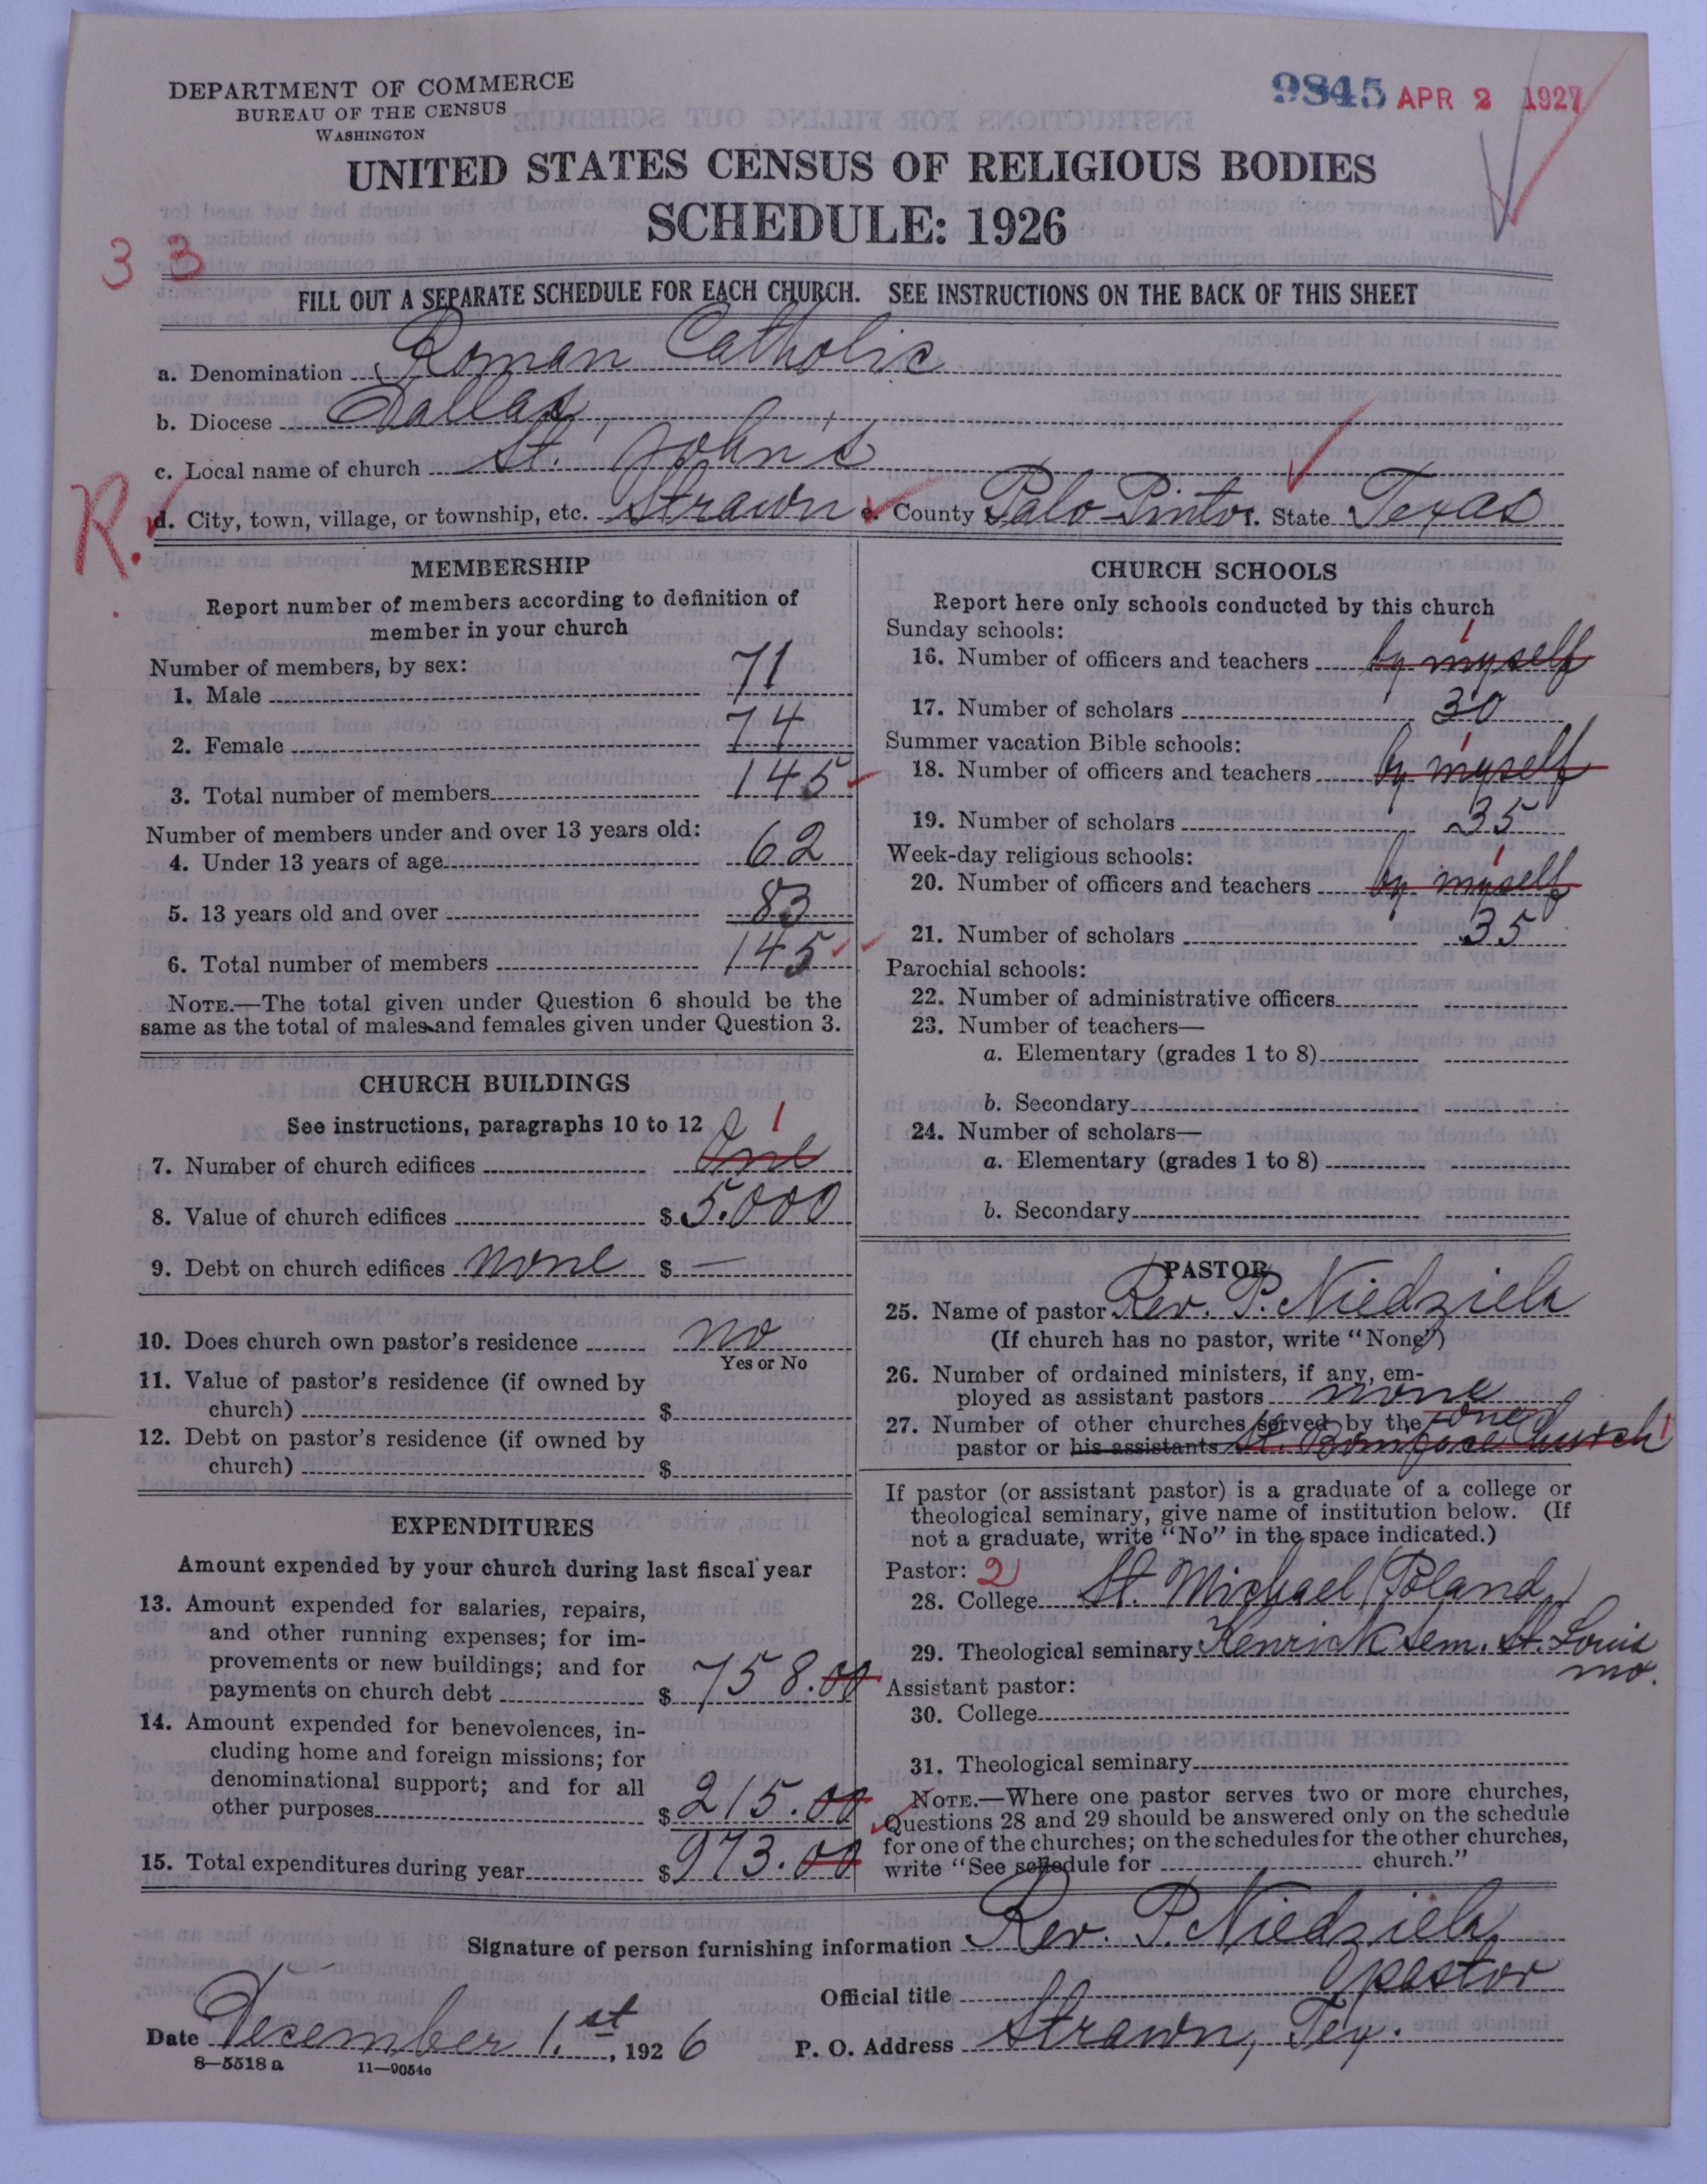 DEPARTMENT OF COMMERCE
BUREAU OF THE CENSUS
WASHINGTON
9845 APR 2 1927
UNITED STATES CENSUS OF RELIGIOUS BODIES
SCHEDULE: 1926
3 3
FILL OUT A SEPARATE SCHEDULE FOR EACH CHURCH. SEE INSTRUCTIONS ON THE BACK OF THIS SHEET
a. Denomination Roman Catholic
b. Diocese Dallas
c. Local name of church St. John's
R.
d. City, town, village, or township, etc. Strawn e. County Palo Pinto f. State Texas
MEMBERSHIP
Report number of members according to definition of
member in your church
Number of members, by sex:
1. Male 71
2. Female 74
3. Total number of members 145
Number of members under and over 13 years old:
4. Under 13 years of age 62
5. 13 years old and over 83
6. Total number of members 145
NOTE.—The total given under Question 6 should be the
same as the total of males and females given under Question 3.
CHURCH BUILDINGS
See instructions, paragraphs 10 to 12
1
7. Number of church edifices One
8. Value of church edifices $ 5.000
9. Debt on church edifices none $ —
10. Does church own pastor's residence no
Yes or No
11. Value of pastor's residence (if owned by
church) $
12. Debt on pastor's residence (if owned by
church) $
EXPENDITURES
Amount expended by your church during last fiscal year
13. Amount expended for salaries, repairs,
and other running expenses; for im-
provements or new buildings; and for
payments on church debt $ 758.00
14. Amount expended for benevolences, in-
cluding home and foreign missions; for
denominational support; and for all
other purposes $ 215.00
15. Total expenditures during year $ 973.00
CHURCH SCHOOLS
Report here only schools conducted by this church
Sunday schools:
1
16. Number of officers and teachers by myself
17. Number of scholars 30
Summer vacation Bible schools:
1
18. Number of officers and teachers by myself
19. Number of scholars 35
Week-day religious schools:
1
20. Number of officers and teachers by myself
21. Number of scholars 35
Parochial schools:
22. Number of administrative officers
23. Number of teachers—
a. Elementary (grades 1 to 8)
b. Secondary
24. Number of scholars—
a. Elementary (grades 1 to 8)
b. Secondary
PASTOR
25. Name of pastor Rev. P. Niedziela
(If church has no pastor, write "None")
26. Number of ordained ministers, if any, em-
ployed as assistant pastors none
27. Number of other churches served by the one
pastor or his assistants St. Boniface Church 1
If pastor (or assistant pastor) is a graduate of a college or
theological seminary, give name of institution below. (If
not a graduate, write "No" in the space indicated.)
Pastor: 2
28. College St. Michael (Poland)
29. Theological seminary Kenrick Sem. St. Louis
Mo.
Assistant pastor:
30. College
31. Theological seminary
NOTE.—Where one pastor serves two or more churches,
Questions 28 and 29 should be answered only on the schedule
for one of the churches; on the schedules for the other churches,
write "See schedule for church."
Signature of person furnishing information Rev. P. Niedziela
Official title pastor
Date December 1.st, 1926 P. O. Address Strawn, Tex.
8—5518a 11—9054o